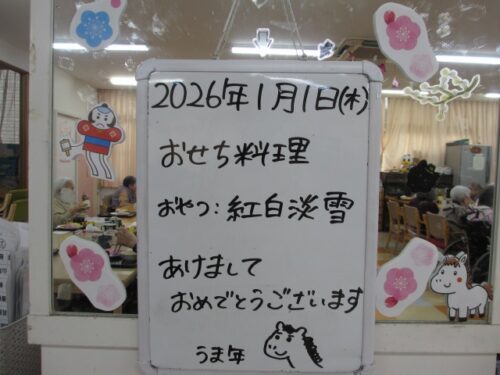 2026年1月1日(木)
おせち料理
おやつ:紅白淡雪
あけまして
おめでとうございます
うま年